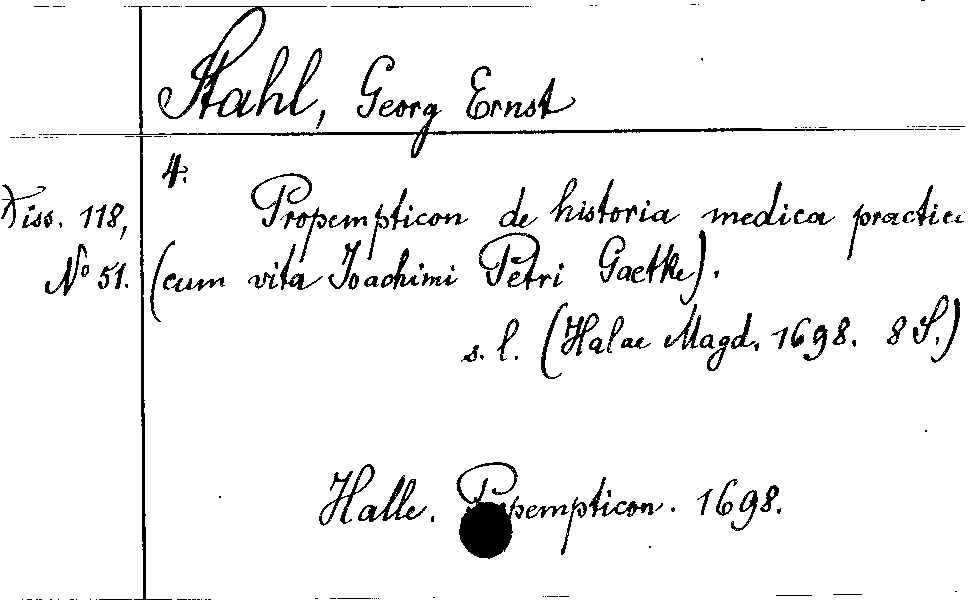 Stahl, Georg Ernst
4.
Diss. 118,
No 51.
Propempticon de historia medica practica
(cum vita Joachimi Petri Gaetke).
s. l. (Halae Magd. 1698. 8 S.)
Halle. Propempticon. 1698.